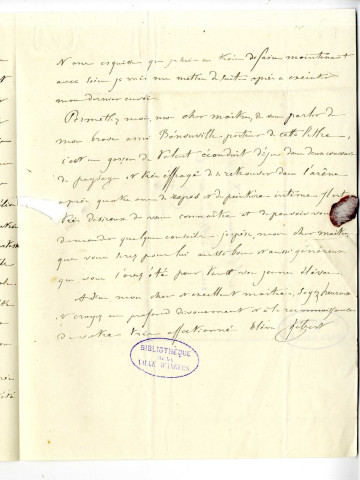 d'une esquisse que je suis en train de faire maintenant
avec soin je vais me mettre de suite après à exécuter
mon dernier envoi
Permettez moi, mon cher maître, de vous parler de
mon brave ami Bénouville porteur de cette lettre
c'est un garçon de talent éconduit déjà dans deux concours
de paysage et très effrayé de se retrouver dans l'arène
après quatre ans de repos et de peinture intime. Il est
très désireux de vous connaître et de pouvoir vous
demander quelque conseil. j'espère, mon cher maître,
que vous serez pour lui aussi bon et aussi généreux
que vous l'avez été pour tous vos jeunes élèves.
Adieu mon cher et excellent maître, soyez heureux
et croyez au profond dévouement et à la reconnaissance
de votre très affectionné élève Hébert
BIBLIOTHÈQUE
DE LA
VILLE D'ANGERS